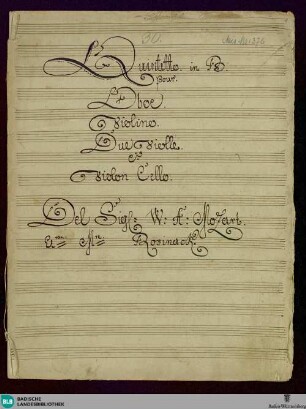 Quintetto in B
pour
L'Oboe
Violino
Due Violle
&
Violon Cello.
Del Sigl: W: A: Mozart.
Rosinack
BLB
BADISCHE
LANDESBIBLIOTHEK
Baden-Württemberg